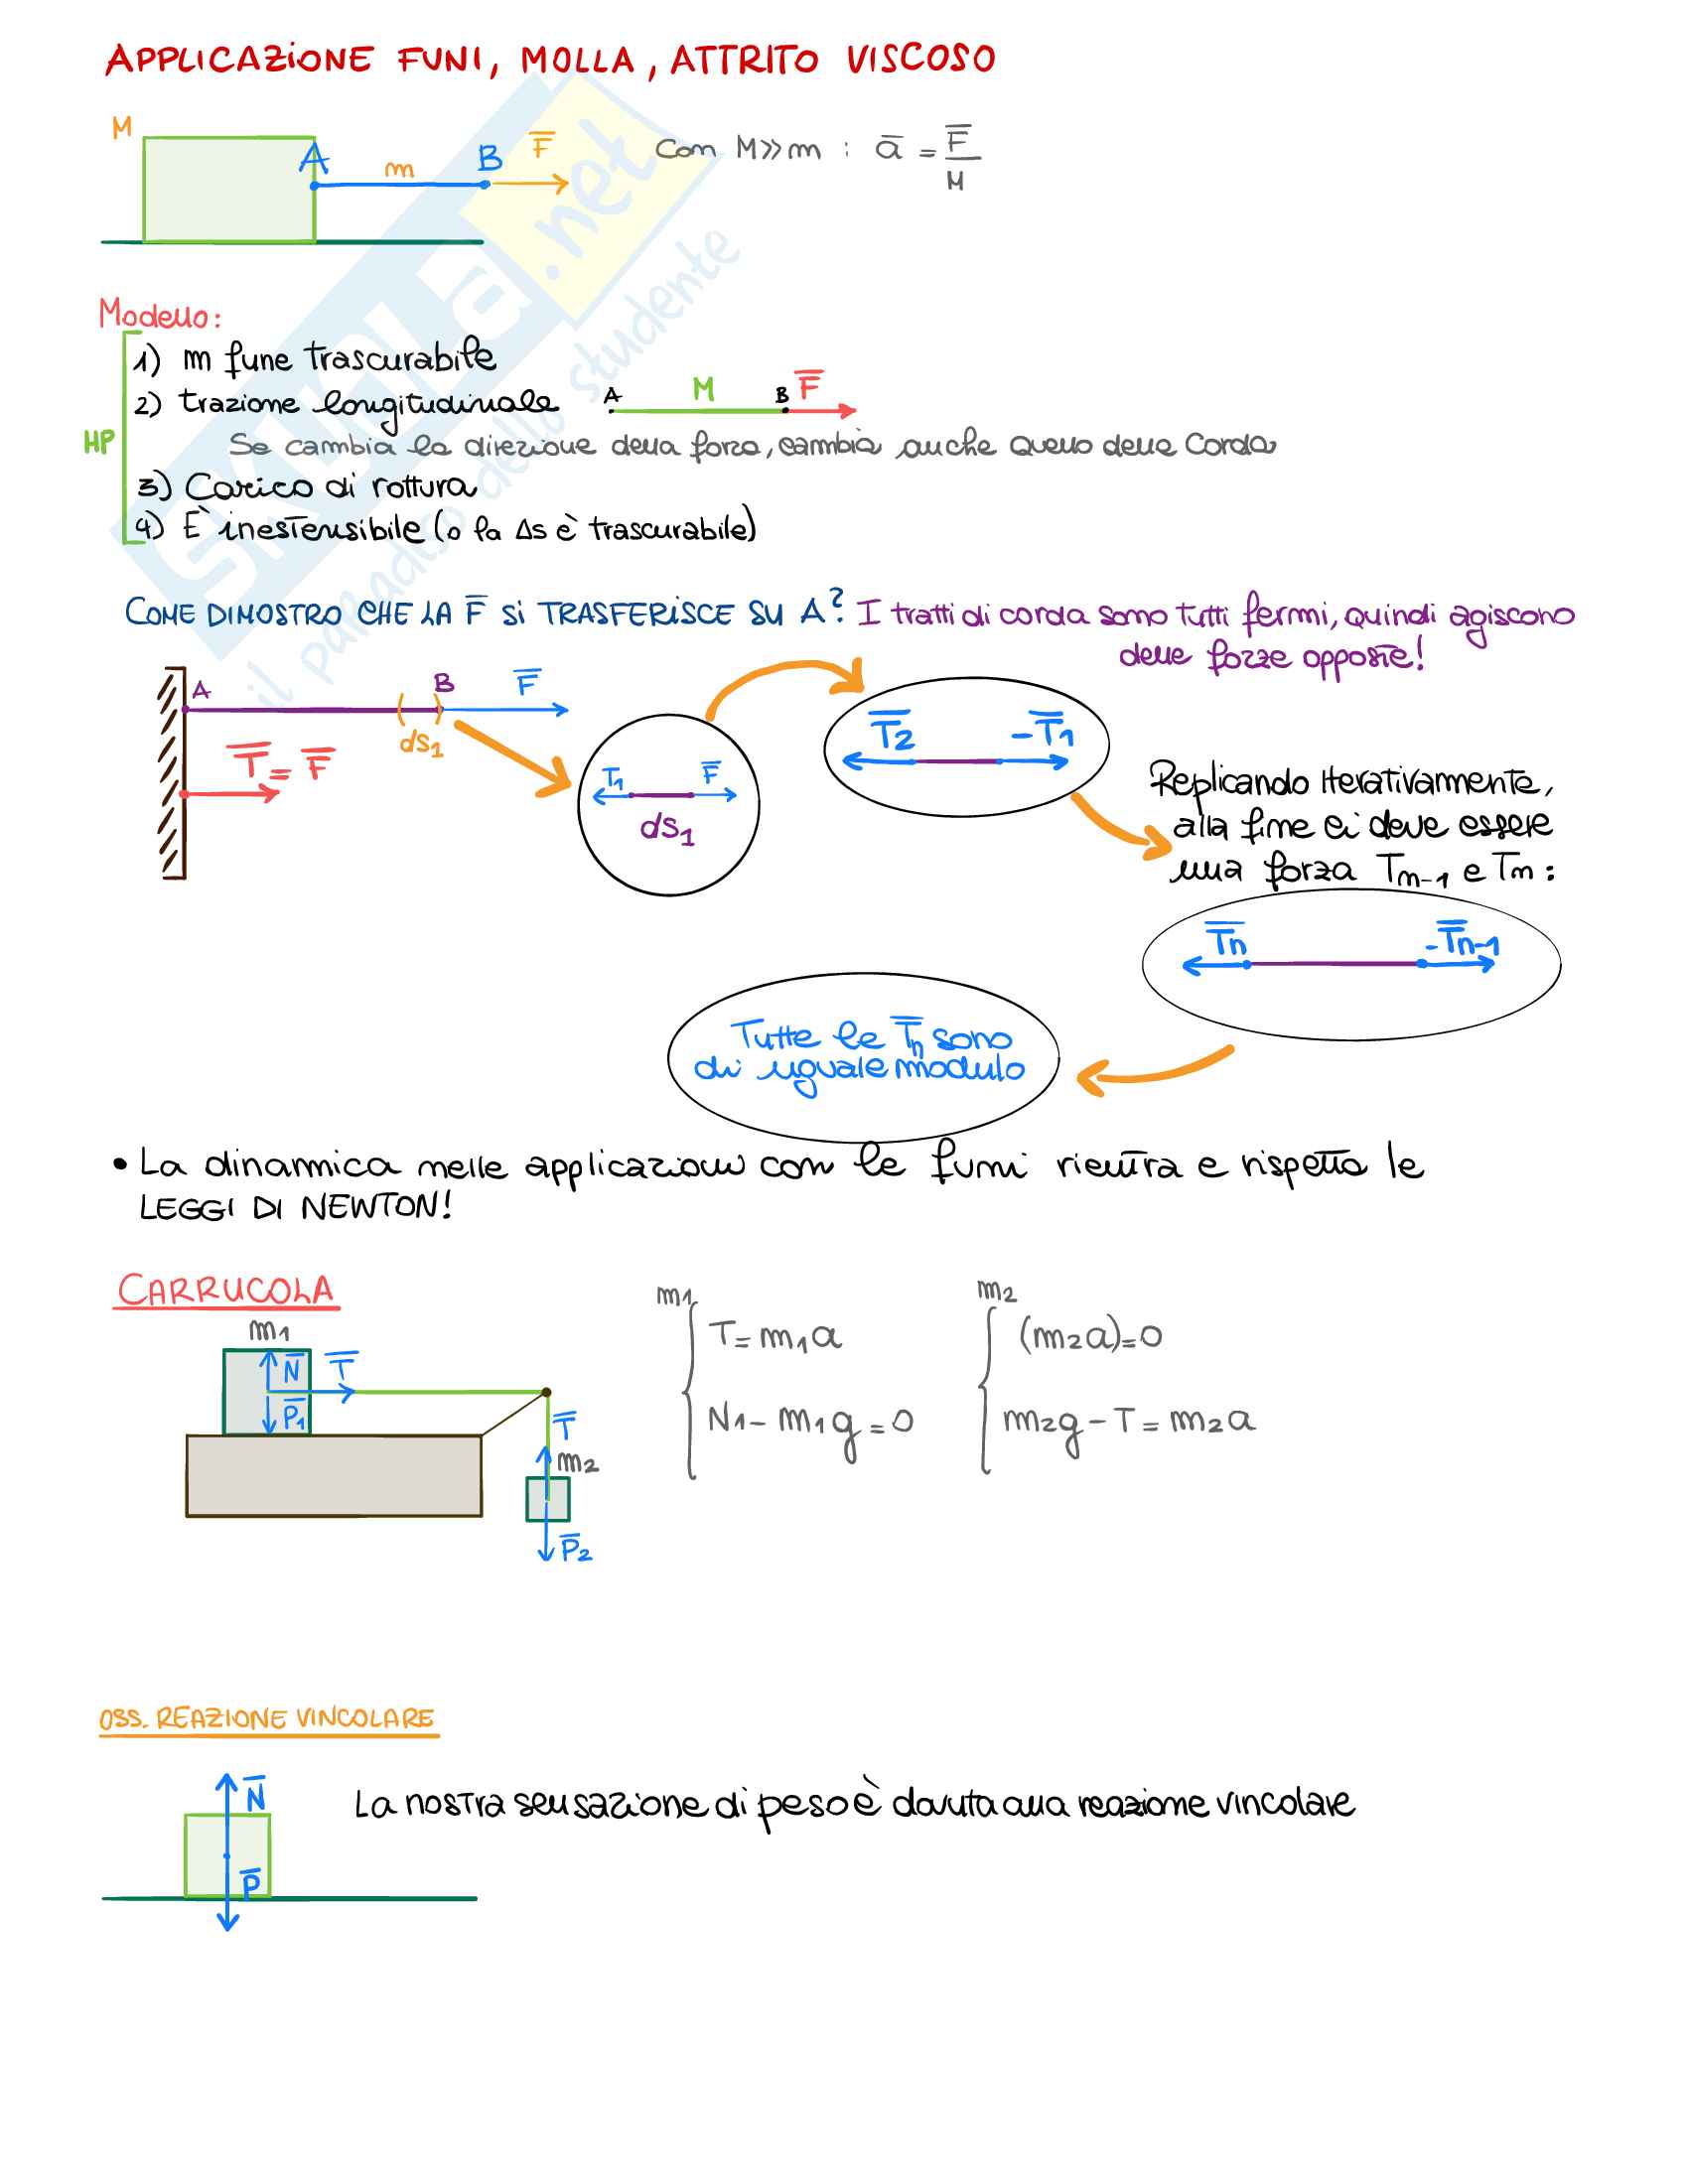 APPLICAZIONE FUNI, MOLLA, ATTRITO VISCOSO
M
A
m
B
F̅
Com M≫m : a̅ = F̅/M
Modello:
HP
1) m fune trascurabile
2) trazione longitudinale
A M B F̅
Se cambia la direzione della forza, cambia anche quella della corda
3) Carico di rottura
4) È inestensibile (o la Δs è trascurabile)
COME DIMOSTRO CHE LA F̅ SI TRASFERISCE SU A? I tratti di corda sono tutti fermi, quindi agiscono
delle forze opposte!
A B F̅
ds₁
T̅ = F̅
T₁ F̅
ds₁
T̅₂ -T̅₁
Replicando iterativamente,
alla fine ci deve essere
una forza Tn-1 e Tn:
T̅n -T̅n-1
Tutte le T̅n sono
di uguale modulo
• La dinamica nelle applicazioni con le funi rientra e rispetta le
LEGGI DI NEWTON!
CARRUCOLA
m₁
N̅ T̅
P̅₁
T̅
m₂
P̅₂
m₁
T = m₁a
N₁ - m₁g = 0
m₂
(m₂a) = 0
m₂g - T = m₂a
OSS. REAZIONE VINCOLARE
N̅
P̅
La nostra sensazione di peso è dovuta alla reazione vincolare
SKUOLA.net
il paradiso dello studente